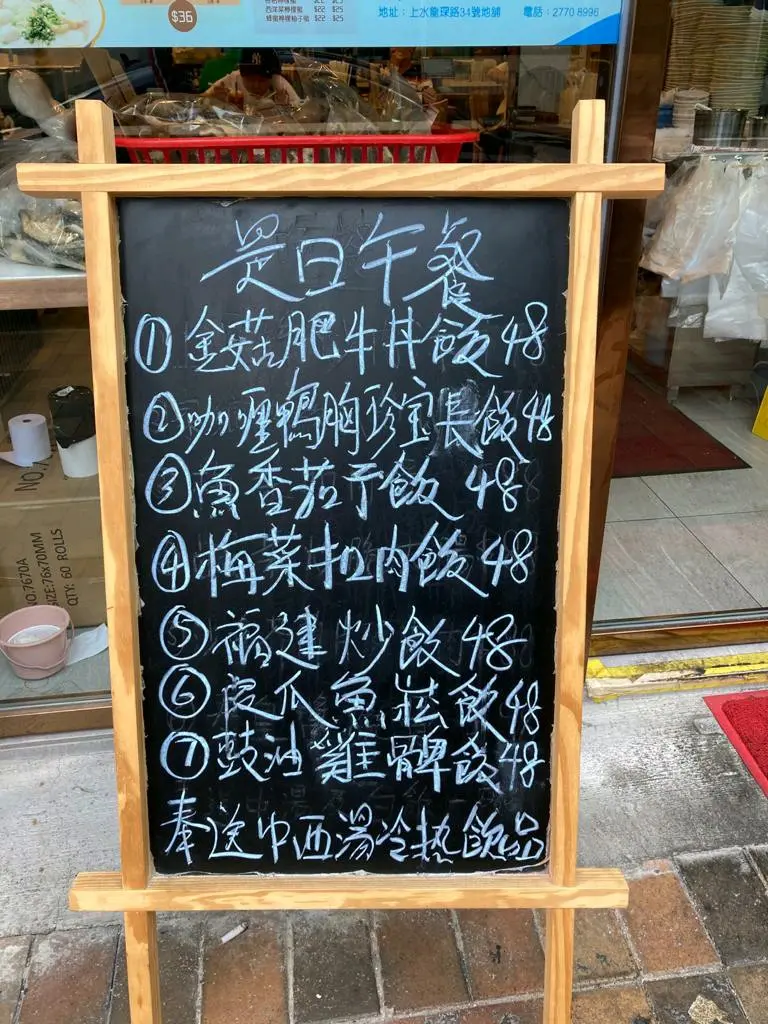 $36
西洋菜檸檬蜜 $22 $25
蜂蜜檸檬柚子蜜 $22 $25
地址：上水龍琛路34號地舖 電話：2770 8996
是日午餐
① 金菇肥牛丼飯 48
② 咖喱鴨胸珍宝長飯 48
③ 魚香茄子飯 48
④ 梅菜扣肉飯 48
⑤ 福建炒飯 48
⑥ 瓜魚崧飯 48
⑦ 豉油雞髀飯 48
奉送中西湯冷热飲品
NO.7670A
SIZE:76x70MM
QTY: 60 ROLLS